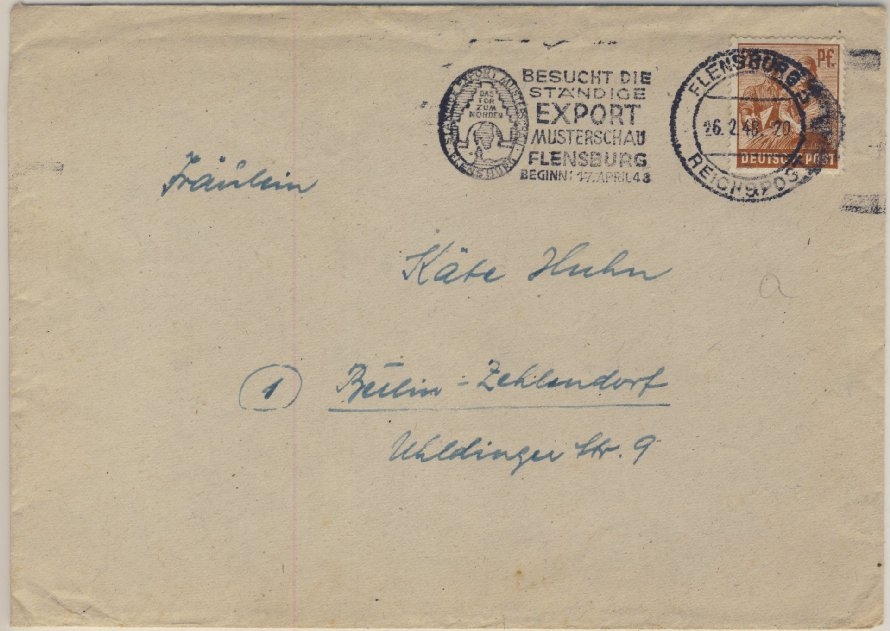 BESUCHT DIE
STÄNDIGE
EXPORT
MUSTERSCHAU
FLENSBURG
BEGINN: 17. APRIL 48
DAS
TOR
ZUM
NORDEN
FLENSBURG
FLENSBURG
26.2.48. 20
REICHSPOST
Pf.
DEUTSCHE POST
Fräulein
Käte Huhn
a
1 Berlin-Zehlendorf
Str. 9